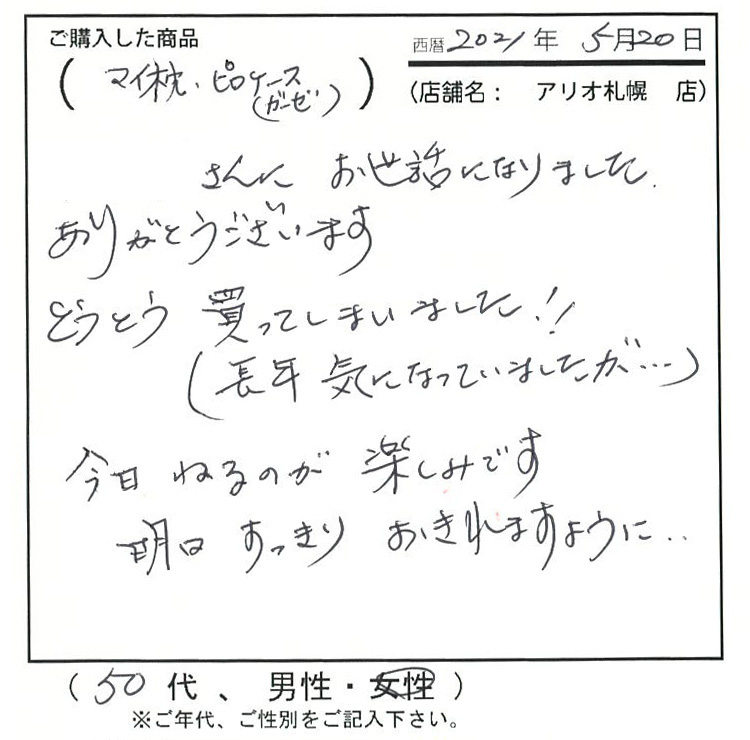 ご購入した商品
西暦 2021年 5月20日
(マイ枕、ピロケース
(ガーゼ))
(店舗名： アリオ札幌 店)
さんに お世話になりました.
ありがとうございます
どうとう 買ってしまいました!!
(長年 気になっていましたが…)
今日 ねるのが 楽しみです
明日 すっきり おきれますように..
(50代、男性・女性)
※ご年代、ご性別をご記入下さい。